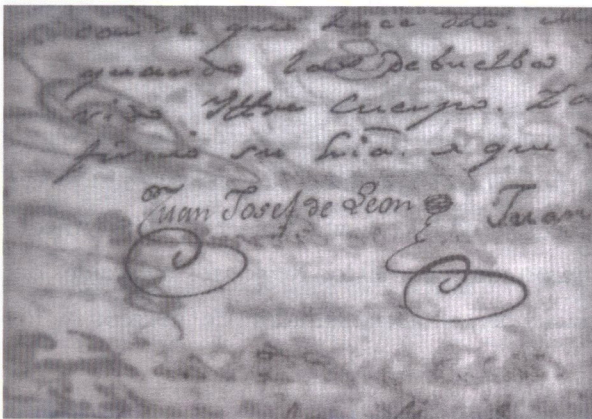 que hace dho.
quando las debuelba
Iltre Cuerpo.
firmó su Sria. que
Juan Josef de Leon Juan